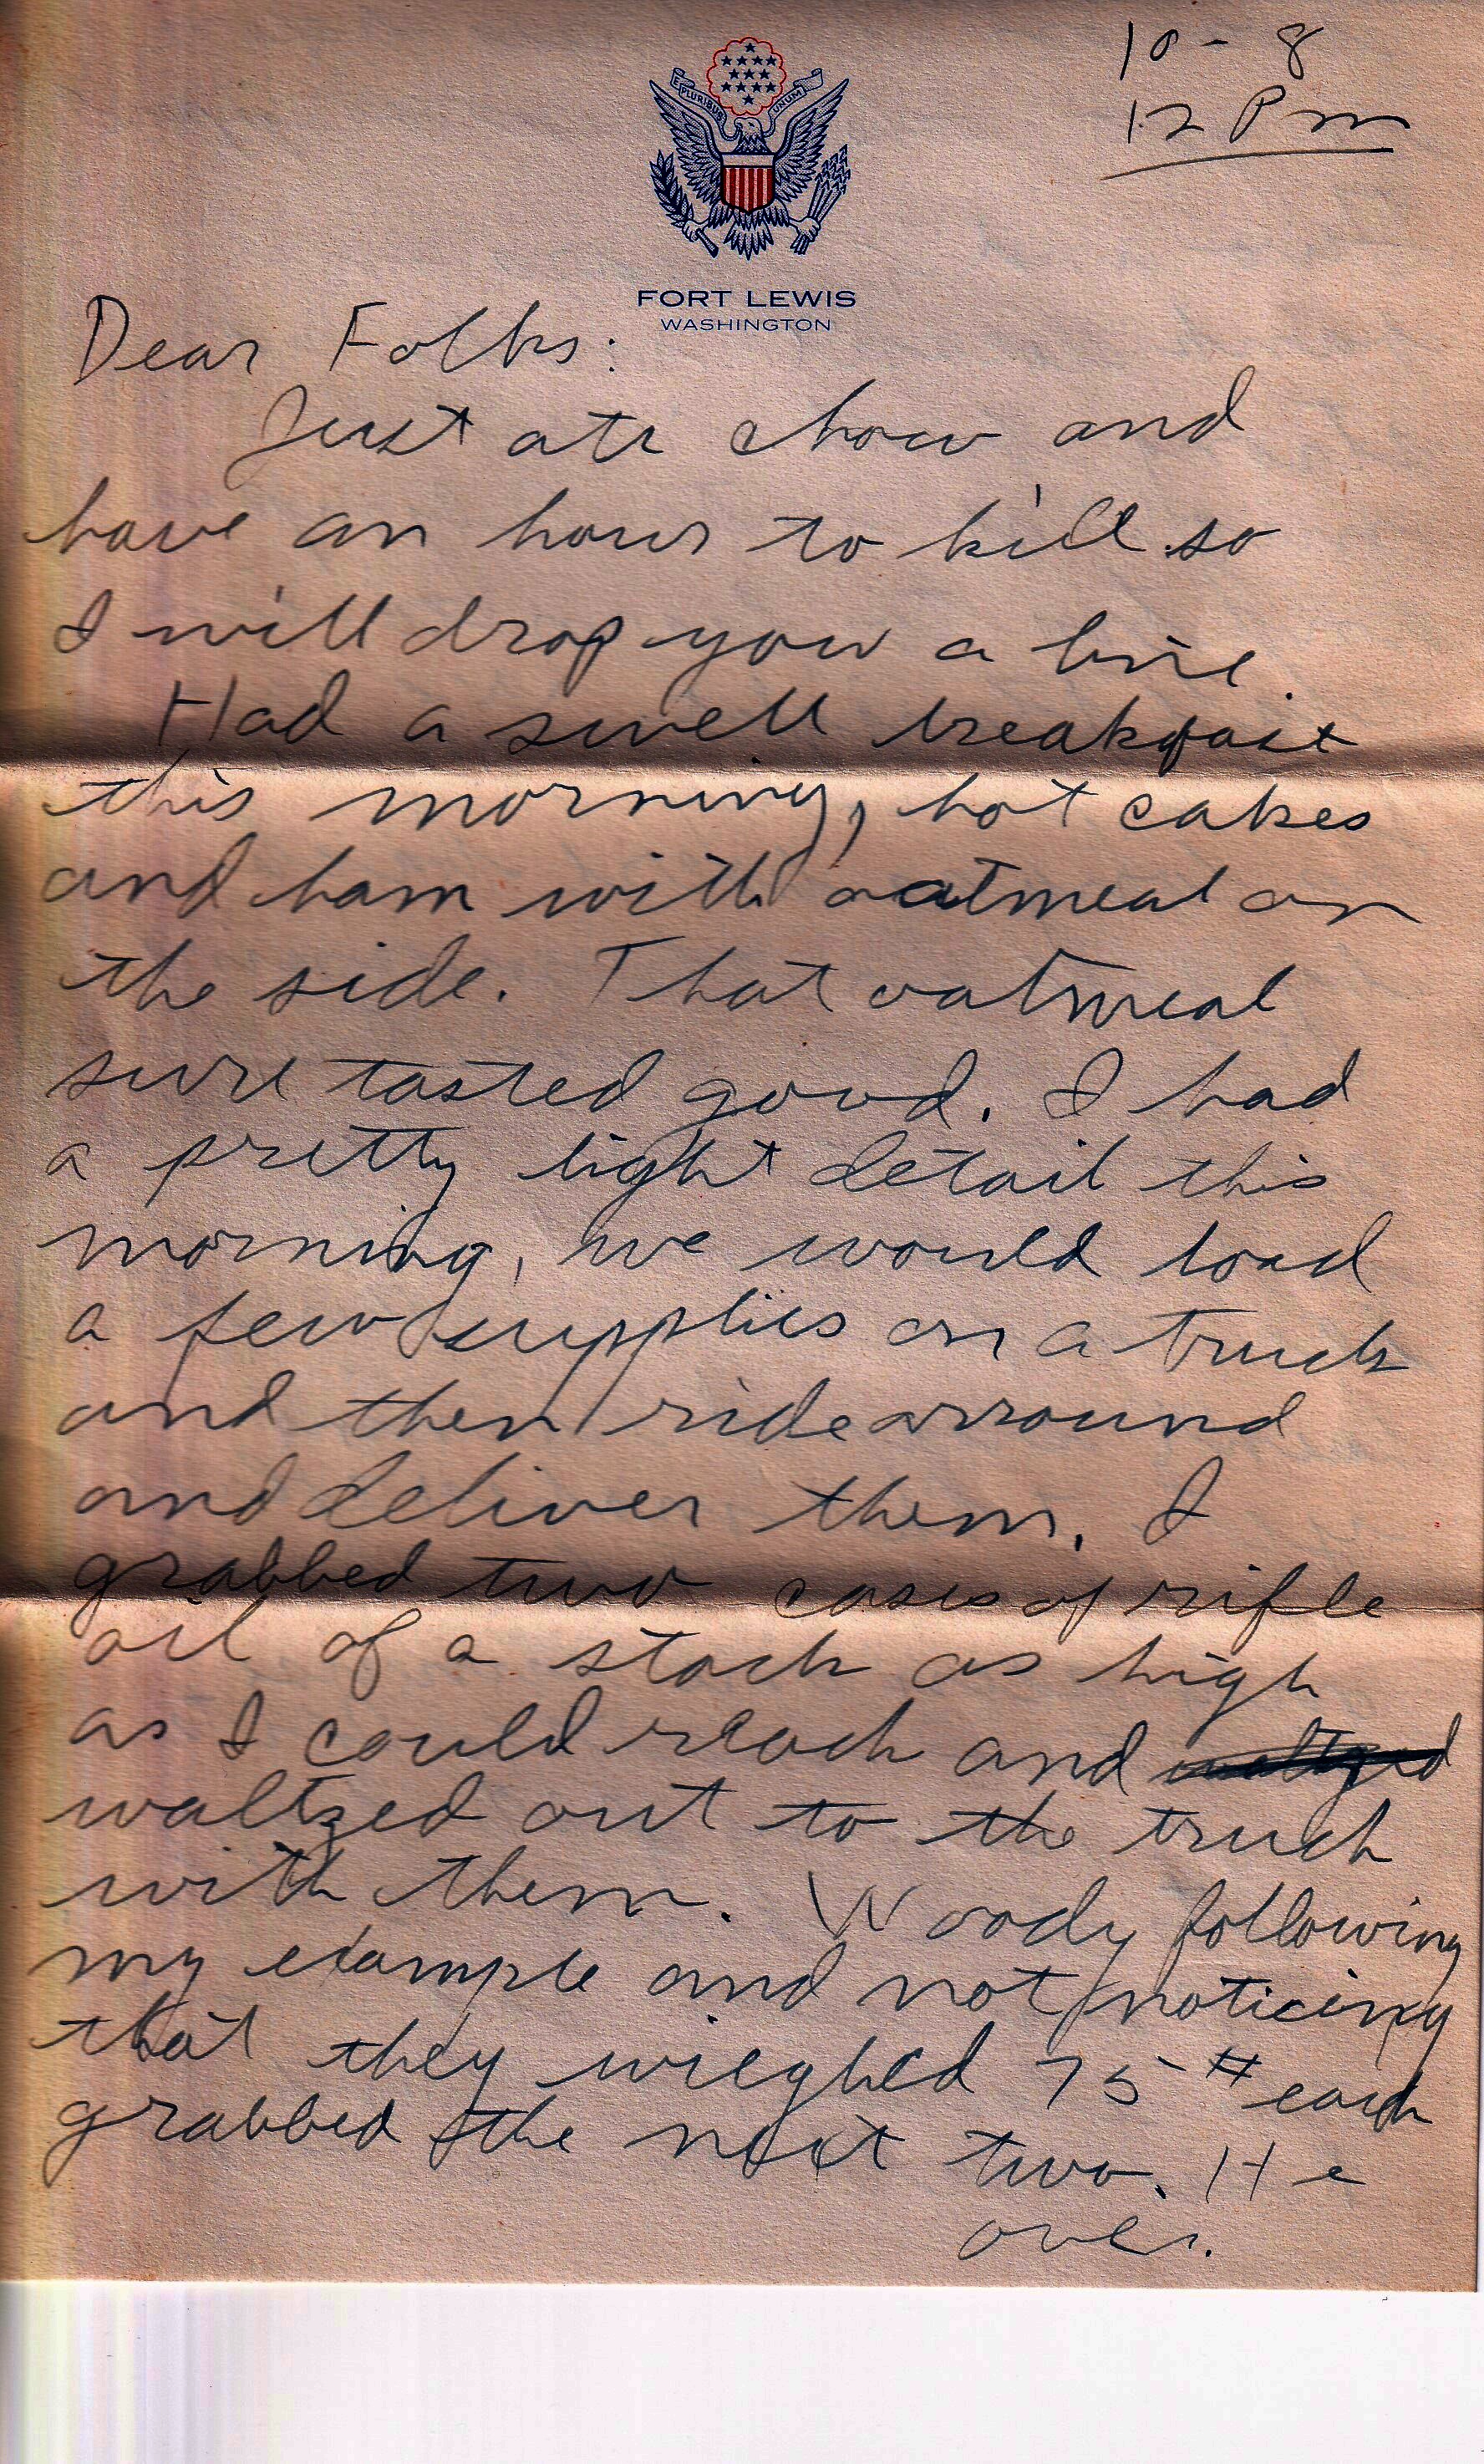 10 - 8
12 Pm
E PLURIBUS UNUM
FORT LEWIS
WASHINGTON
Dear Folks:
Just ate chow and
have an hour to kill so
I will drop you a line.
Had a swell breakfast
this morning, hot cakes
and ham with oatmeal on
the side. That oatmeal
sure tasted good. I had
a pretty light detail this
morning, we would load
a few supplies on a truck
and then ride arround
and deliver them. I
grabbed two cases of rifle
oil of a stack as high
as I could reach and waltzed
waltzed out to the truck
with them. Woody following
my example and not noticing
that they wieghed 75 # each
grabbed the next two. He
over.